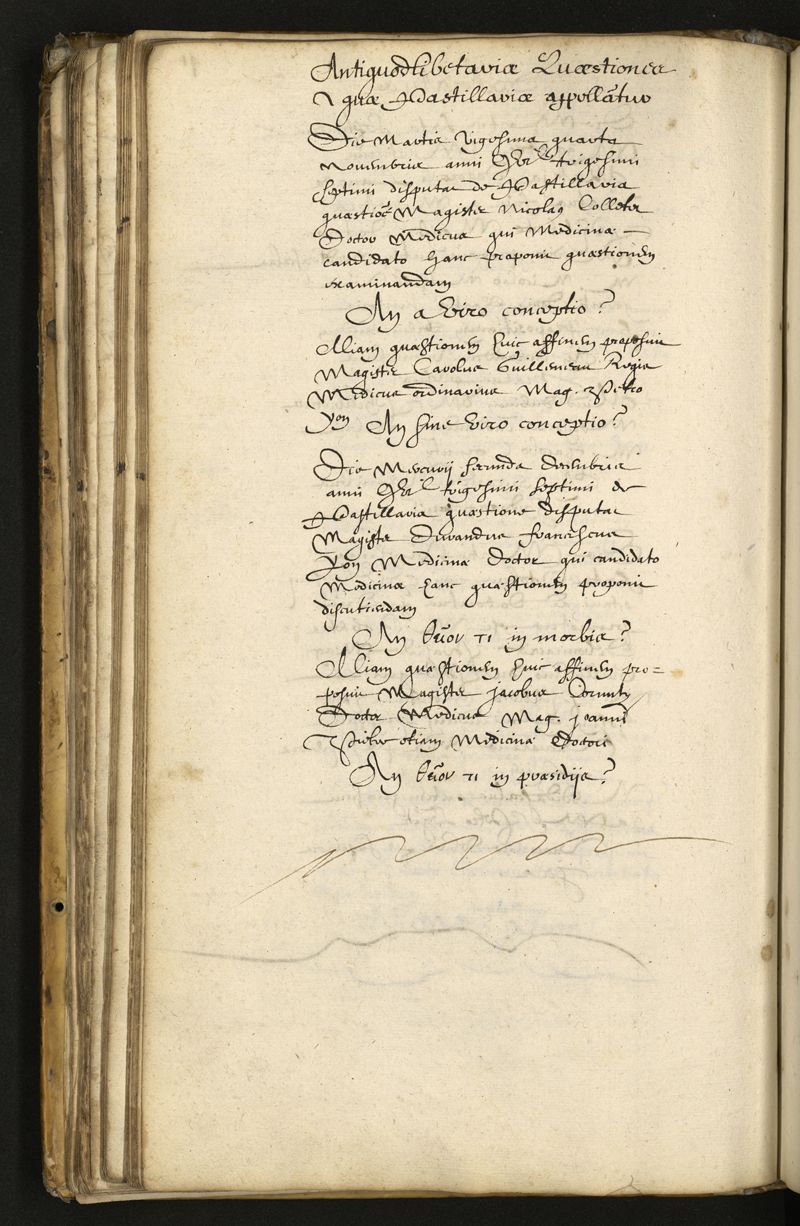 Antiquodlibetariæ Quæstiones
quæ Pastillariæ appellãtur
Die Martis vigesima quarta
Novembris anni trigesimi
septimi disputat de Pastillaria
quæstiõe Magister Nicolaus Colletet
Doctor Medicus qui Medicinæ
candidato hanc proponit quæstionem
examinandam
An a Viro conceptio?
Aliam quæstionem huic affinem proposuit
Magister Carolus Guillemeau Regis
Medicus ordinarius Mag. Petro
Yon An sine Viro conceptio?
Die Mercurij secunda decembris
anni trigesimi septimi de
Pastillaria quæstione disputat
Magister Durandus Franciscus
Yon Medicinæ Doctor qui candidato
Medicinæ hanc quæstionem proponit
discutiendam
An θεῖον τι in morbis?
Aliam quæstionem huic affinem pro=
posuit Magister Jacobus Cornuty
Doctor Medicus Mag. Joanni
etiam Medicinæ Doctori
An θεῖον τι in præsidijs?